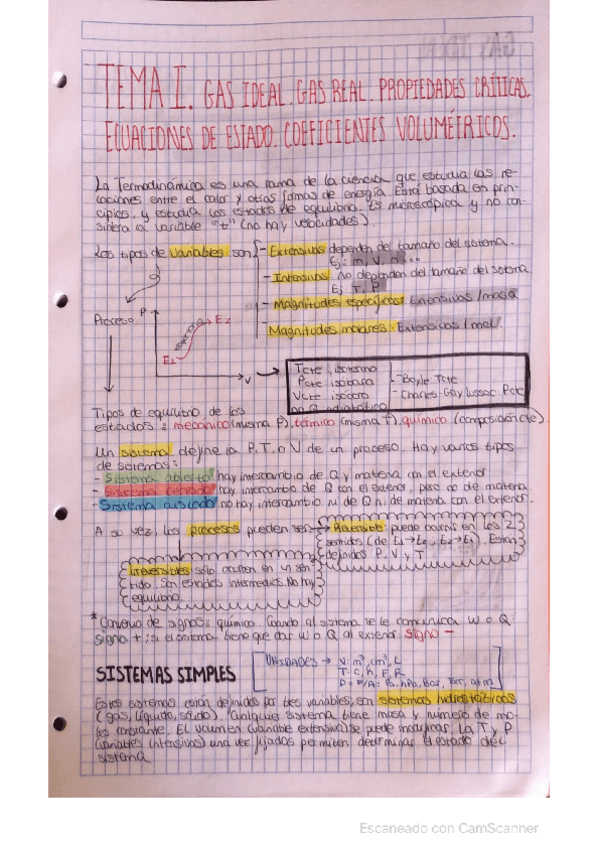 TEMA I. GAS IDEAL. GAS REAL. PROPIEDADES CRÍTICAS.
ECUACIONES DE ESTADO. COEFICIENTES VOLUMÉTRICOS.
La Termodinámica es una rama de la ciencia que estudia las re-
laciones entre el calor y otras formas de energía. Está basada en prin-
cipios y estudia los estados de equilibrio. Es microscópica y no con-
sidera la variable "t" (no hay velocidades).
Los tipos de variables son
- Extensivas dependen del tamaño del sistema.
Ej: m, V, n...
- Intensivas: no dependen del tamaño del sistema
Ej T, P
- Magnitudes específicas: Extensivas/masa
- Magnitudes molares: Extensivas/mol.
Proceso
P
E2
E1
V
Tcte isoterma
Pcte isobara
Vcte isocora
no Q adiabático
- Boyle Tcte
- Charles-Gay Lussac Pcte
Tipos de equilibrio de los
estados: mecánico (misma P), térmico (misma T), químico (composición cte).
Un sistema define la P, T, o V de un proceso. Hay varios tipos
de sistemas:
- Sistema abierto hay intercambio de Q y materia con el exterior
- Sistema cerrado hay intercambio de Q con el exterior, pero no de materia
- Sistema aislado no hay intercambio ni de Q ni de materia con el exterior.
A su vez, los procesos pueden ser
Reversible: puede ocurrir en los 2
sentidos (de E1→E2, E2→E1). Están
definidos P, V y T
Irreversibles sólo ocurren en un sen-
tido. Son estados intermedios. No hay
equilibrio.
* Convenio de signos: químico. Cuando al sistema se le comunica W o Q
signo +; si el sistema tiene que dar W o Q al exterior signo -
SISTEMAS SIMPLES
UNIDADES → V: m³, cm³, L
T: C, K, F, R
P = F/A: Pa, hPa, Bar, Torr, atm
Estos sistemas están definidos por tres variables, son sistemas hidrostáticos
(gas, líquido, sólido). Cualquier sistema tiene masa y número de mo-
les constante. El volumen (variable extensiva) se puede modificar. La T y P
(variables intensivas) una vez fijados permiten determinar el estado del
sistema
Escaneado con CamScanner